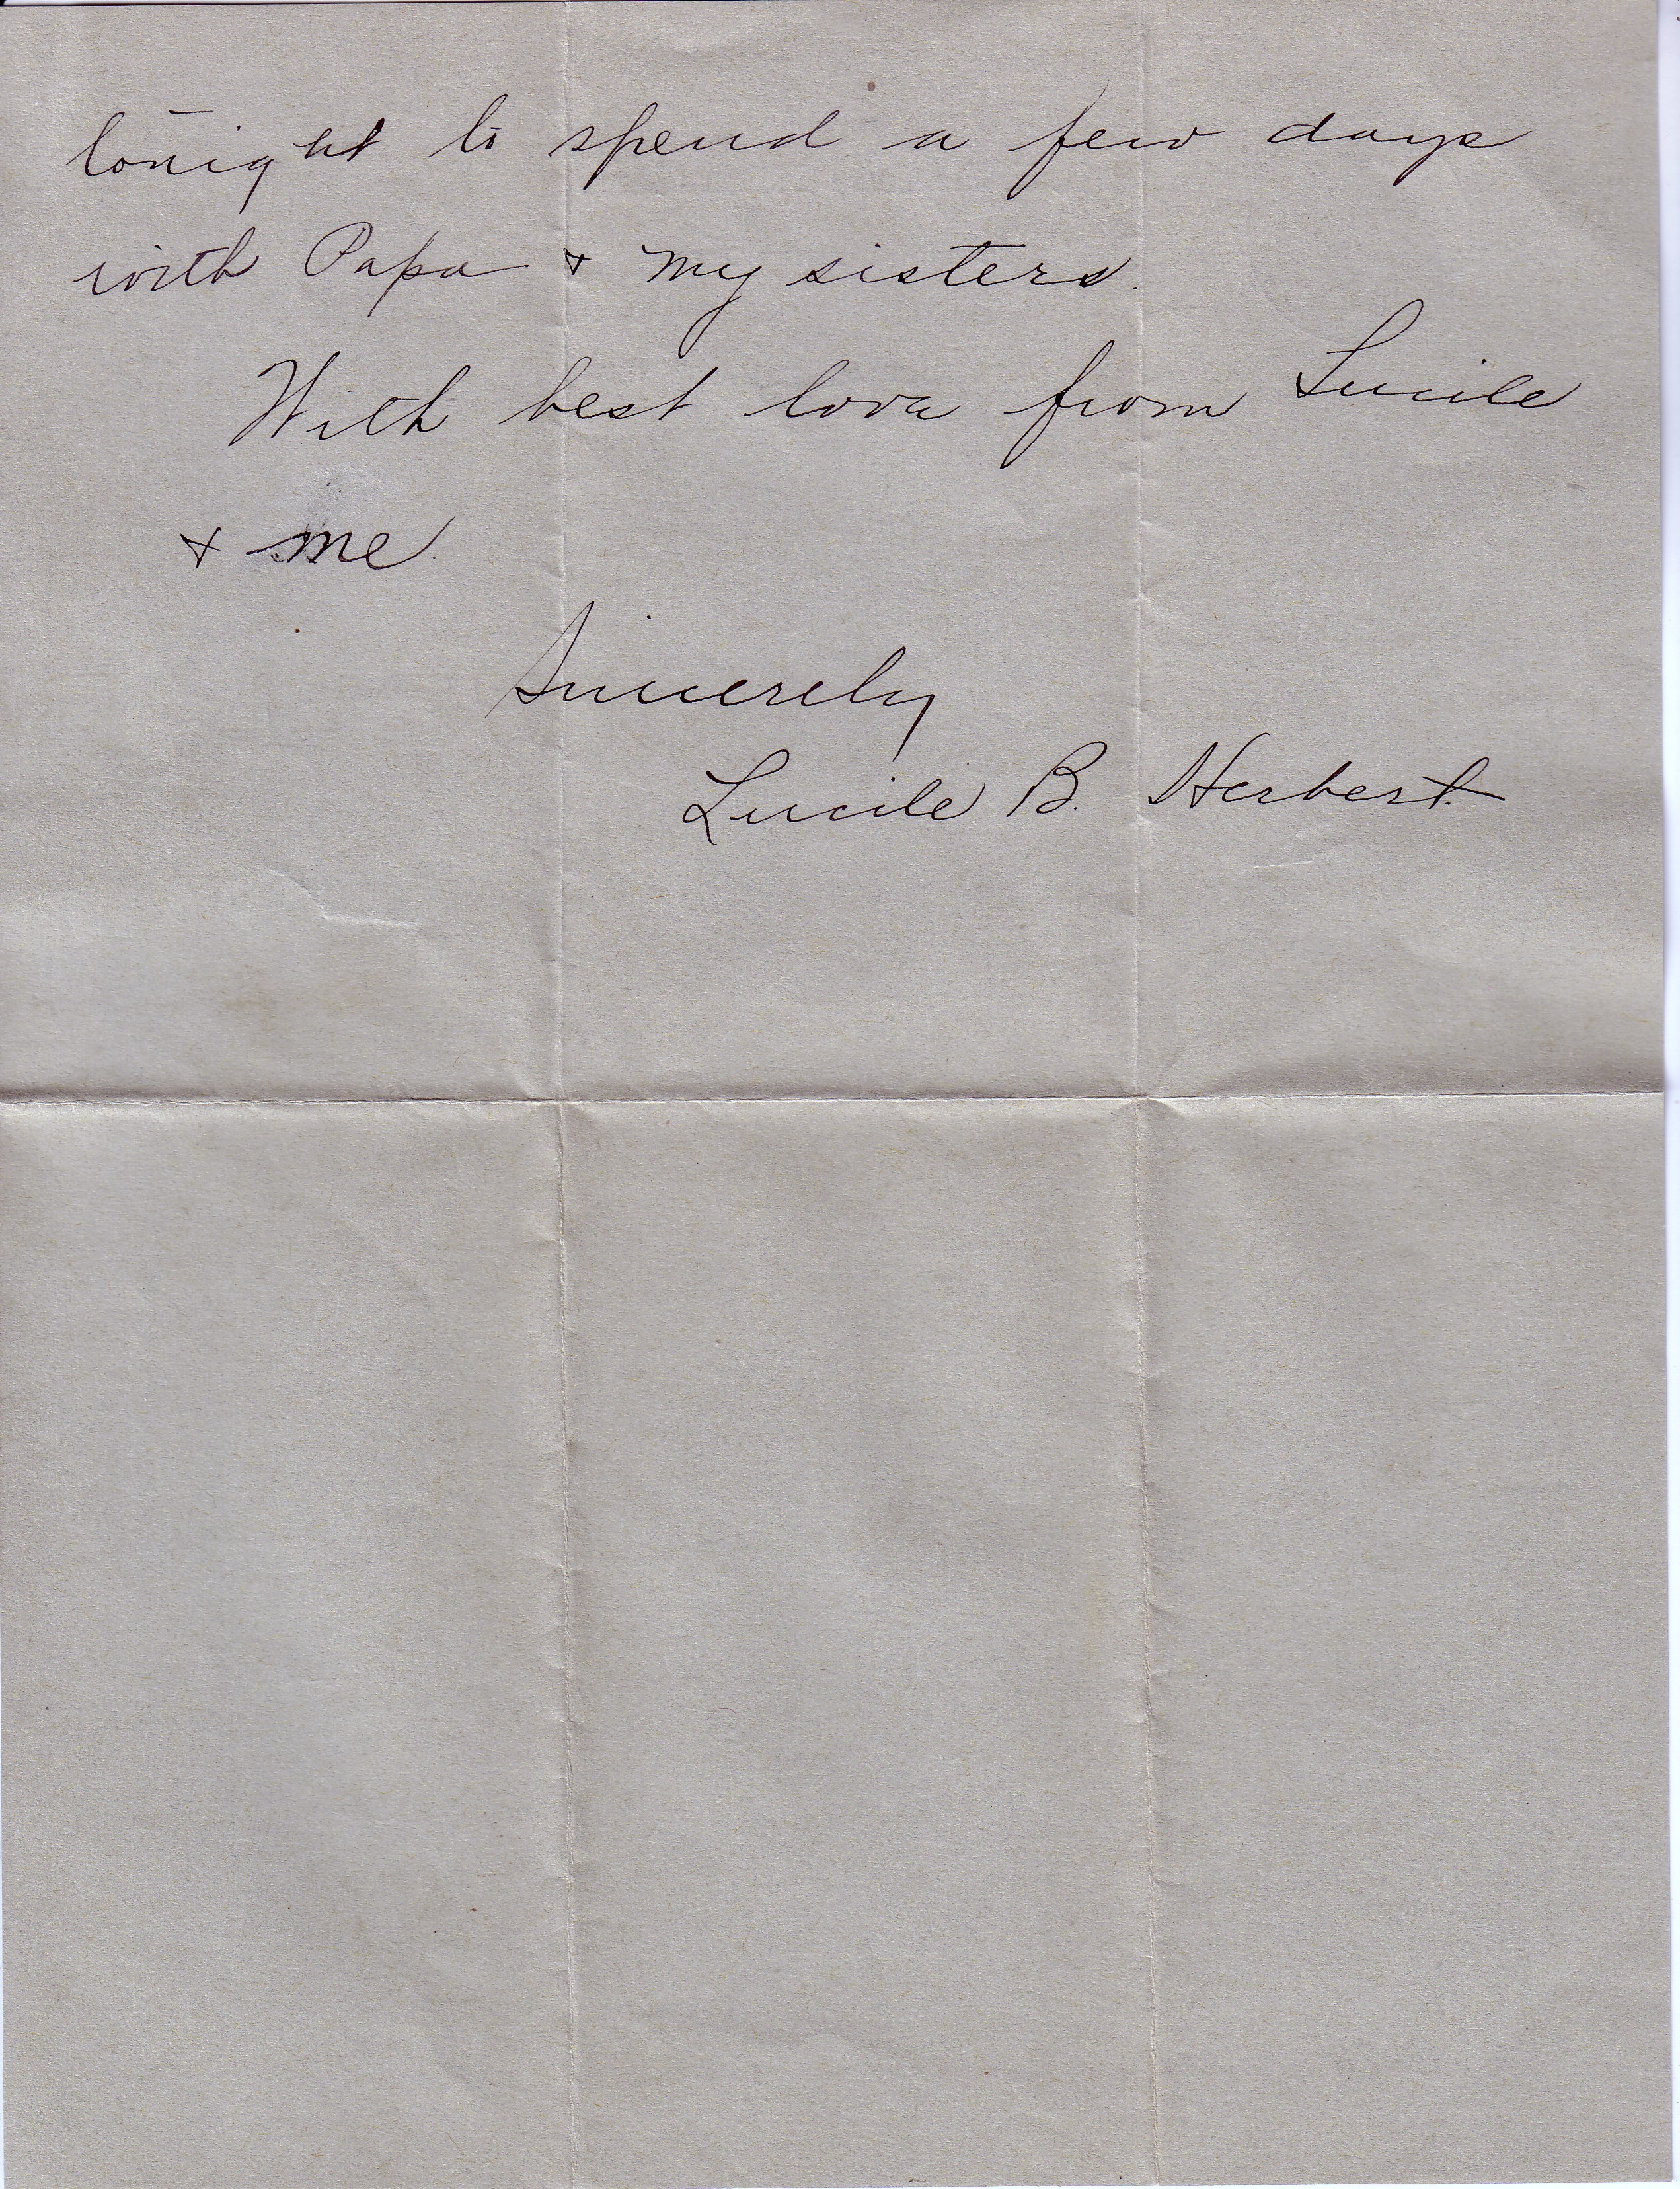 tonight to spend a few days
with Papa & my sisters.
With best love from Lucile
& me.
Sincerely
Lucile B. Herbert.